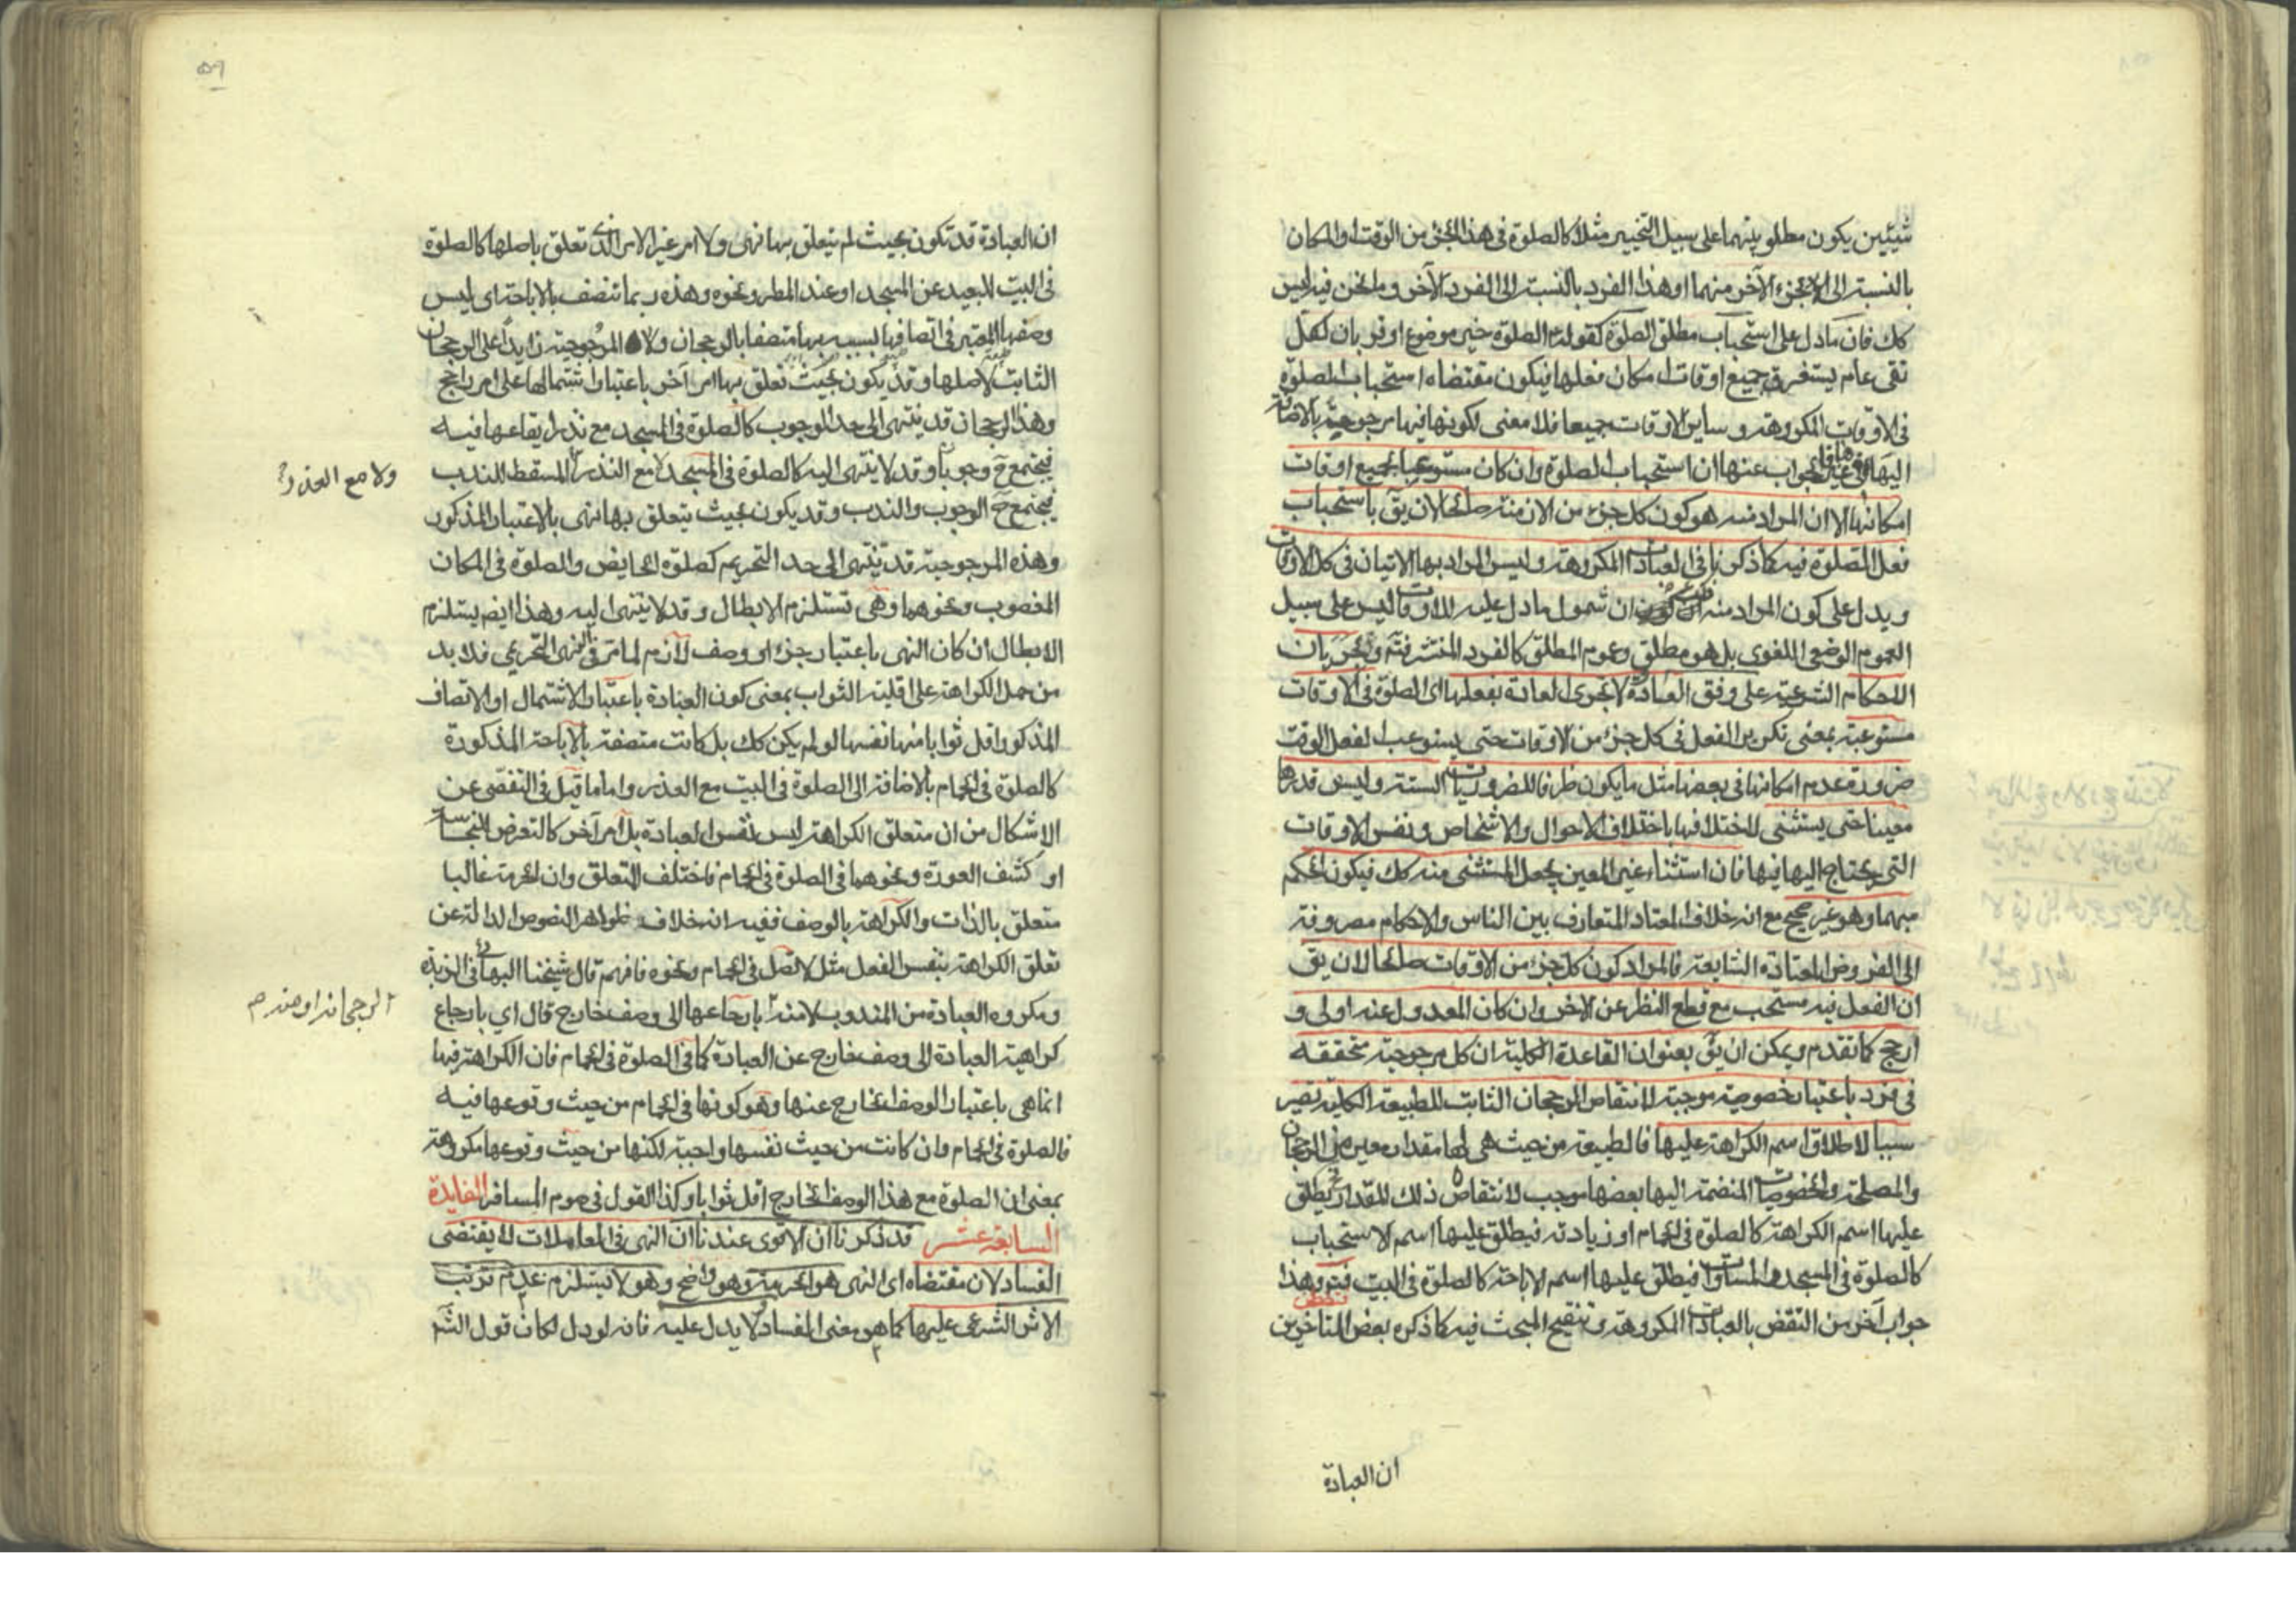 شيئين يكون مطلوبيتهما على سبيل التخيير مثلا كالصلوة فى هذا الجزء من الوقت او المكان
بالنسبة الى الجزء الآخر منهما او هذا الفرد بالنسبة الى الفرد الآخر وما نحن فيه ليس
كك فان ما دل على استحباب مطلق الصلوة كقوله الصلوة خير موضوع او قربان كل
تقى عام يستغرق جميع اوقات امكان فعلها فيكون مقتضاه استحباب الصلوة
فى الاوقات المكروهة وساير الاوقات جميعا فلا معنى لكونها فيها مرجوحة بالاضافة
اليها فى غيرها فالجواب عنها ان استحباب الصلوة وان كان مستوعبا لجميع اوقات
امكانها الا ان المراد منه هو كون كل جزء من الازمنة صالحا لان يق باستحباب
فعل الصلوة فيه كما ذكرنا فى العبادات المكروهة وليس المراد بها الاتيان فى كل الاوقات
ويدل على كون المراد منه ان شمول ما دل عليه للاوقات ليس على سبيل
العموم الوضعى اللغوى بل هو مطلق وعموم المطلق كالفرد المنتشر فتم وجريان
الاحكام الشرعية على وفق العادة لا تجرى العادة بفعلها اى الصلوة فى الاوقات
مستوعبة بمعنى تكرير الفعل فى كل جزء من الاوقات حتى يستوعب الفعل الوقت
ضرورة عدم امكانها فى بعضها مثل ما يكون ظرفا للضروريات الستة وليس قدرها
معينا حتى يستثنى لاختلافها باختلاف الاحوال والاشخاص ونفس الاوقات
التى يحتاج اليها فيها فان استثناء غير المعين يجعل المستثنى منه كك فيكون الحكم
مبهما وهو غير صحيح مع انه خلاف المعتاد المتعارف بين الناس والاحكام مصروفة
الى الفروض المعتادة الشايعة فالمراد كون كل جزء من الاوقات صالحا لان يق
ان الفعل فيه مستحب مع قطع النظر عن الاخر وان كان المعدول عنه اولى و
ارجح كما تقدم ويمكن ان يق بعنوان القاعدة الكلية ان كل مرجوحية متحققه
فى فرد باعتبار خصوصية موجبة لانتقاص الرجحان الثابت للطبيعة الكلية تصير
سببا لاطلاق اسم الكراهة عليها فالطبيعة من حيث هى لها مقدار معين من الرجحان
والمصلحة والخصوصيات المنضمة اليها بعضها موجب لانتقاص ذلك المقدار فيطلق
عليها اسم الكراهة كالصلوة فى الحمام او زيادته فيطلق عليها اسم الاستحباب
كالصلوة فى المسجد والمساوات فيطلق عليها اسم الاباحة كالصلوة فى البيت فتم وهذا
جواب آخر من النقض بالعبادات المكروهة وتنقيح المبحث فيه كما ذكره بعض المتاخرين
ان العبادة
ان العبادة قد تكون بحيث لم يتعلق بها نهى ولا امر غير الامر الذى تعلق باصلها كالصلوة
فى البيت للبعيد عن المسجد او عند المطر ونحوه وهذه ربما تتصف بالاباحة اى ليس
وصفها المعتبر فى اتصافها بسببه بها متصفا بالرجحان ولا المرجوحية زايدا على الرجحان
الثابت لاصلها وقد يكون بحيث تعلق بها امر آخر باعتبار اشتمالها على امر راجح
وهذا الرجحان قد ينتهى الى حد الوجوب كالصلوة فى المسجد مع نذر ايقاعها فيه
فيجتمع ح وجوبا وقد لا ينتهى اليه كالصلوة فى المسجد لا مع النذر المسقط للندب
ولا مع العذر
فيجتمع ح الوجوب والندب وقد يكون بحيث يتعلق بها نهى بالاعتبار المذكور
وهذه المرجوحية قد تنتهى الى حد التحريم كصلوة الحايض والصلوة فى المكان
المغصوب ونحوهما وهى تستلزم الابطال وقد لا ينتهى اليه وهذا ايضا يستلزم
الابطال ان كان النهى باعتبار جزء او وصف لازم لما مر فى النهى التحريمى فلا بد
من حمل الكراهة على اقلية الثواب بمعنى كون العبادة باعتبار الاشتمال او الاتصاف
المذكور اقل ثوابا منها نفسها لو لم يكن كك بل كانت متصفة بالاباحة المذكورة
كالصلوة فى الحمام بالاضافة الى الصلوة فى البيت مع العذر واما ما قيل فى التفصى عن
الاشكال من ان متعلق الكراهة ليس نفس العبادة بل امر آخر كالتعرض للنجاسة
او كشف العورة ونحوهما فى الصلوة فى الحمام فاختلف المتعلق وان الحرمة غالبا
متعلق بالذات والكراهة بالوصف ففيه انه خلاف ظواهر النصوص الدالة عن
تعلق الكراهة بنفس الفعل مثل لا تصل فى الحمام ونحوه فافهم قال شيخنا البهائى فى الزبدة
ومكروه العبادة من المندوب لا منذر بارجاعها الى وصف خارج قال اي بارجاع
كراهية العبادة الى وصف خارج عن العبادة كما فى الصلوة فى الحمام فان الكراهة فيها
انما هى باعتبار الوصف الخارج عنها وهو كونها فى الحمام من حيث وقوعها فيه
فالصلوة فى الحمام وان كانت من حيث نفسها واجبة لكنها من حيث وقوعها مكروهة
بمعنى ان الصلوة مع هذا الوصف الخارج اقل ثوابا وكذا القول فى صوم المسافر الفايدة
السابعة عشر قد ذكرنا ان الاقوى عندنا ان النهى فى المعاملات لا يقتضى
الفساد لان مقتضاه اى النهى هو الحرمة وهو واضح وهو لا يستلزم عدم ترتب
الاثر الشرعى عليها كما هو معنى الفساد لا يدل عليه فانه لو دل لكان قول الشم